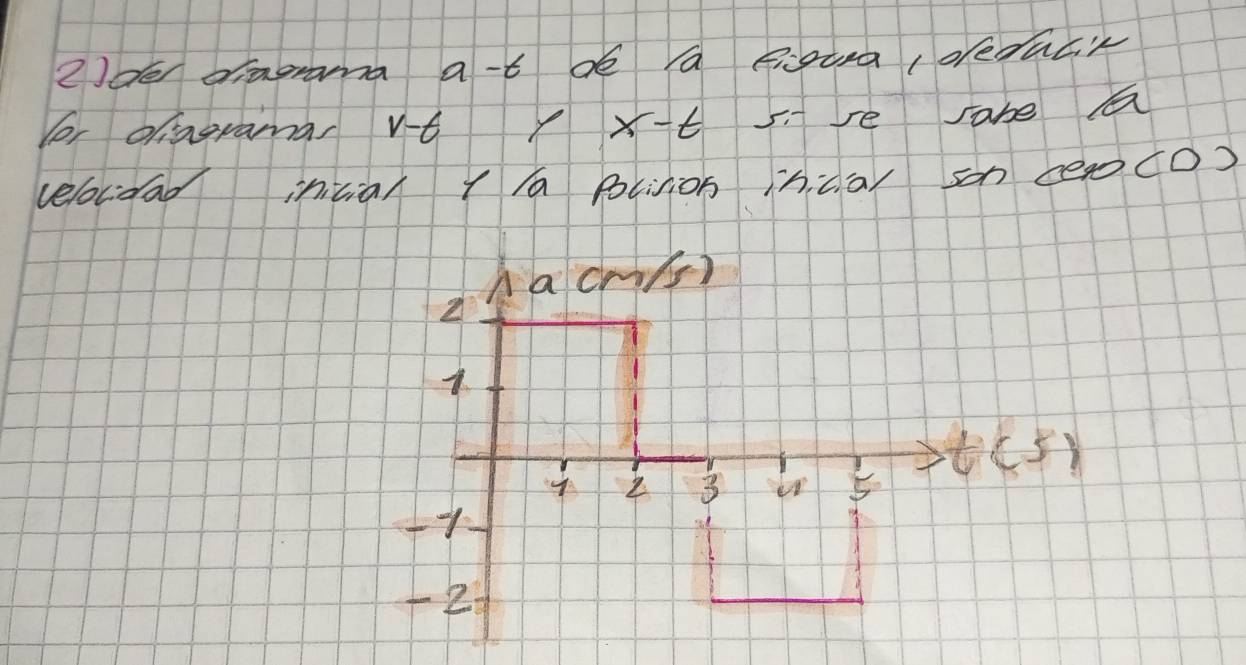 2) del diagrama a-t de la figura, deducir
los diagramas v-t y x-t si se sabe la
velocidad inicial y la posision inicial son cero (0)
a (m/s)
2
1
t(s)
1 2 3 4 5
-1
-2